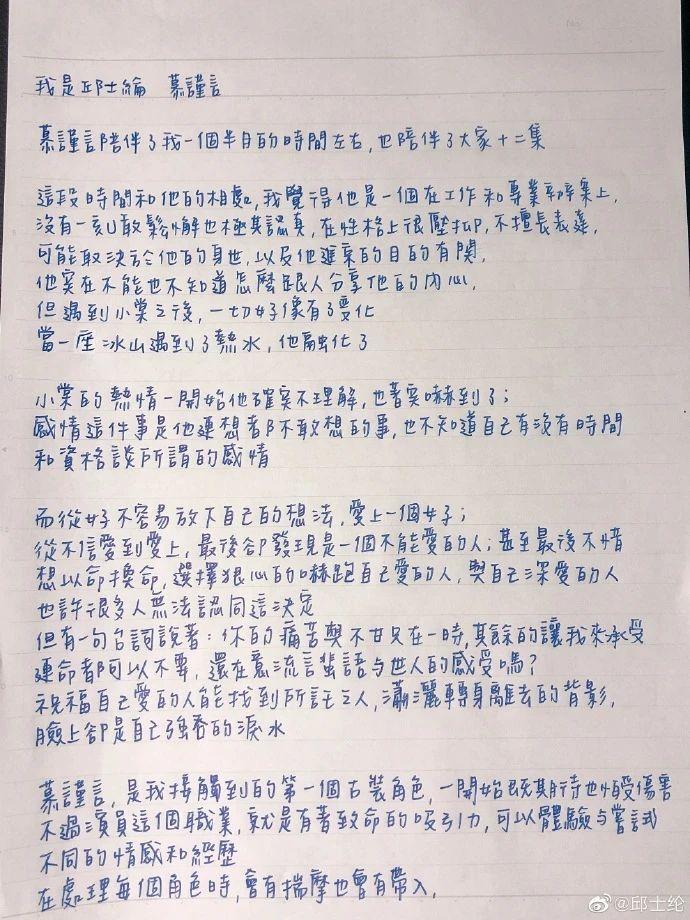 我是邱士綸 慕謹言
慕謹言陪伴了我一個半月的時間左右,也陪伴了大家十二集
這段時間和他的相處,我覺得他是一個在工作和專業辦案上,
沒有一刻敢鬆懈也極其認真,在性格上很壓抑,不擅長表達,
可能取決於他的身世,以及他進棠的目的有關,
他実在不能也不知道怎麼跟人分享他的內心,
但遇到小棠之後,一切好像有了變化
當一座冰山遇到了熱水,他融化了
小棠的熱情一開始他確実不理解,也著実嚇到了;
感情這件事是他連想都不敢想的事,也不知道自己有沒有時間
和資格談所謂的感情
而從好不容易放下自己的想法,愛上一個女子;
從不信愛到愛上,最後卻發現是一個不能愛的人;甚至最後不惜
想以命換命,選擇狠心的嚇跑自己愛的人,與自己深愛的人
也許很多人無法認同這決定
但有一句台詞說著:你的痛苦與不甘只在一時,其餘的讓我來承受
連命都可以不要,還在意流言蜚語与世人的感受嗎?
祝福自己愛的人能找到所託之人,瀟灑轉身離去的背影,
臉上卻是自己強吞的淚水
慕謹言,是我接觸到的第一個古裝角色,一開始既期待也怕受傷害
不過演員這個職業,就是有著致命的吸引力,可以體驗与嘗試
不同的情感和經歷
在處理每個角色時,會有揣摩也會有帶入,
@邱士纶